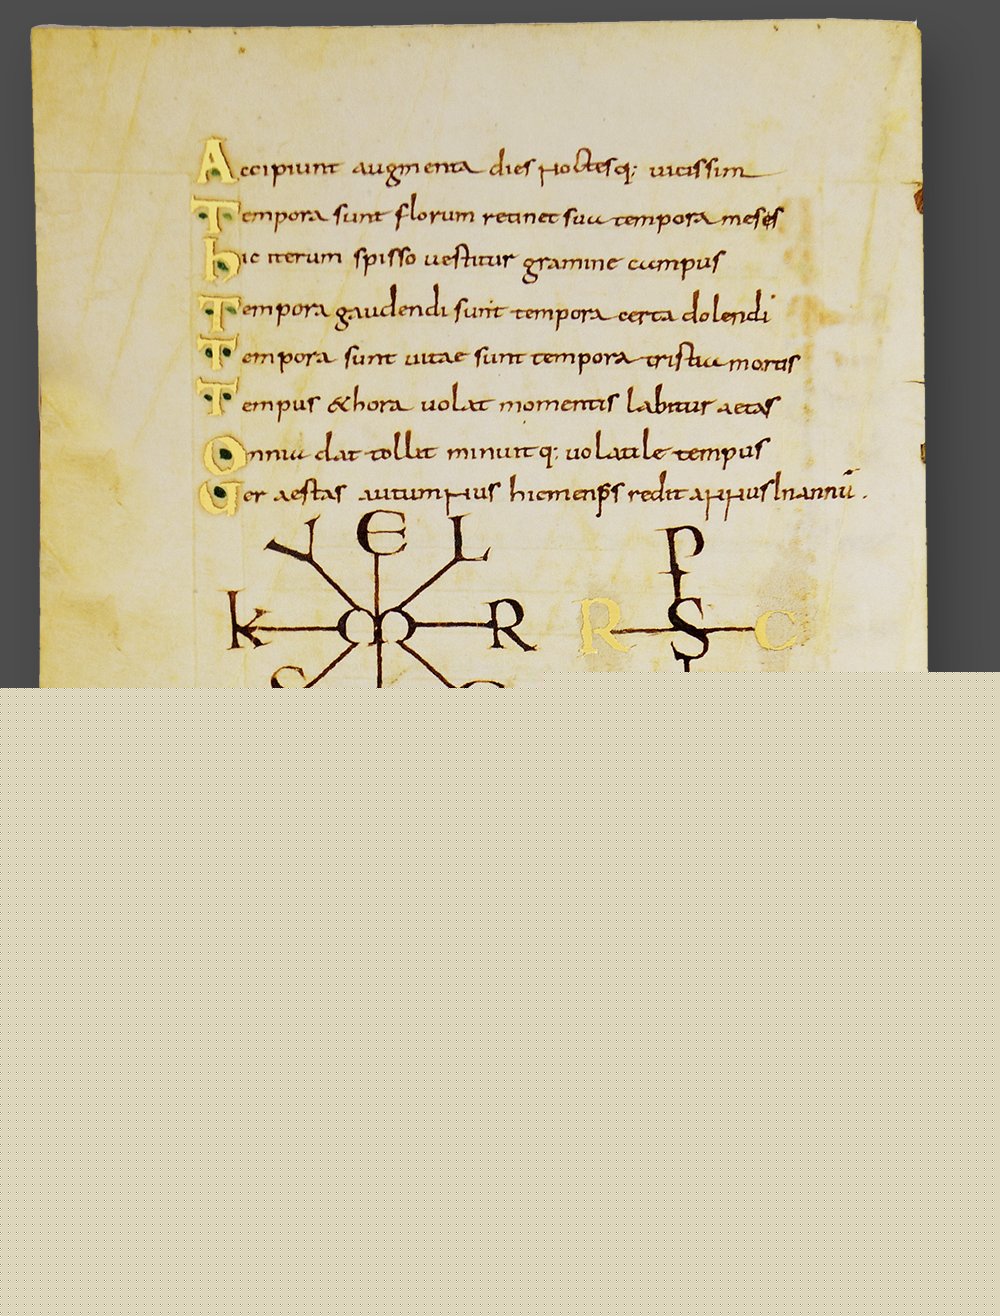 Accipiunt augmenta dies Noctesq; uicissim
Tempora sunt florum retinet sua tempora meses
hic iterum spisso uestitur gramine campus
Tempora gaudendi sunt tempora certa dolendi
Tempora sunt uitae sunt tempora tristia mortis
Tempus &hora uolat momentis labitur aetas
Omnia dat tollit minuitq; uolatile tempus
Uer aestas autumNus hiemens redit aNNus Inannū.
V E L P
K M R R S C
S